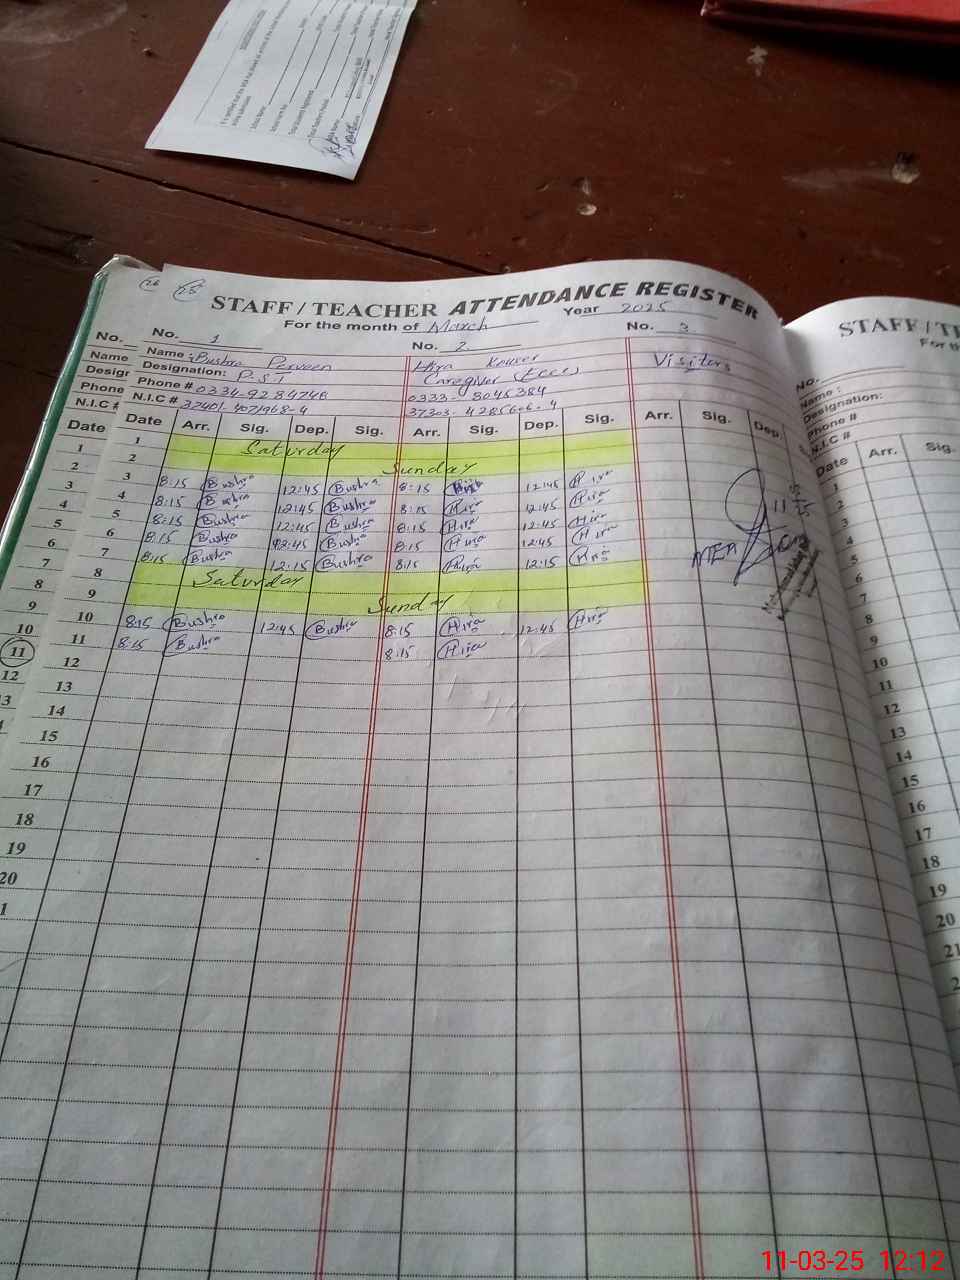 26 25
STAFF / TEACHER ATTENDANCE REGISTER
For the month of March Year 2025
No. No. 1 No. 2 No. 3
Name Name : Bushra Perveen Hira Kouser Visitors
Designation: P.S.T Caregiver (Ecce)
Phone Phone # 0334-9284748 0333-8045384
N.I.C # N.I.C # 37401-4071968-4 37303-4285606-4
Date Date Arr. Sig. Dep. Sig. Arr. Sig. Dep. Sig. Arr. Sig. Dep.
1 Saturday
2 Sunday
3 8:15 Bushra 12:45 Bushra 8:15 Hira 12:45 Hira
4 8:15 Bushra 12:45 Bushra 8:15 Hira 12:45 Hira
5 8:15 Bushra 12:45 Bushra 8:15 Hira 12:45 Hira
6 8:15 Bushra 12:45 Bushra 8:15 Hira 12:45 Hira
7 8:15 Bushra 12:15 Bushra 8:15 Hira 12:15 Hira
8 Saturday
9 Sunday
10 8:15 Bushra 12:45 Bushra 8:15 Hira 12:45 Hira
11 8:15 Bushra 8:15 Hira
12
13
14
15
16
17
18
19
20
MEA
STAFF / TE
For th
No.
Name :
Designation:
Phone #
N.I.C #
Date Arr. Sig.
1
2
3
4
5
6
7
8
9
10
11
12
13
14
15
16
17
18
19
20
21
11-03-25 12:12